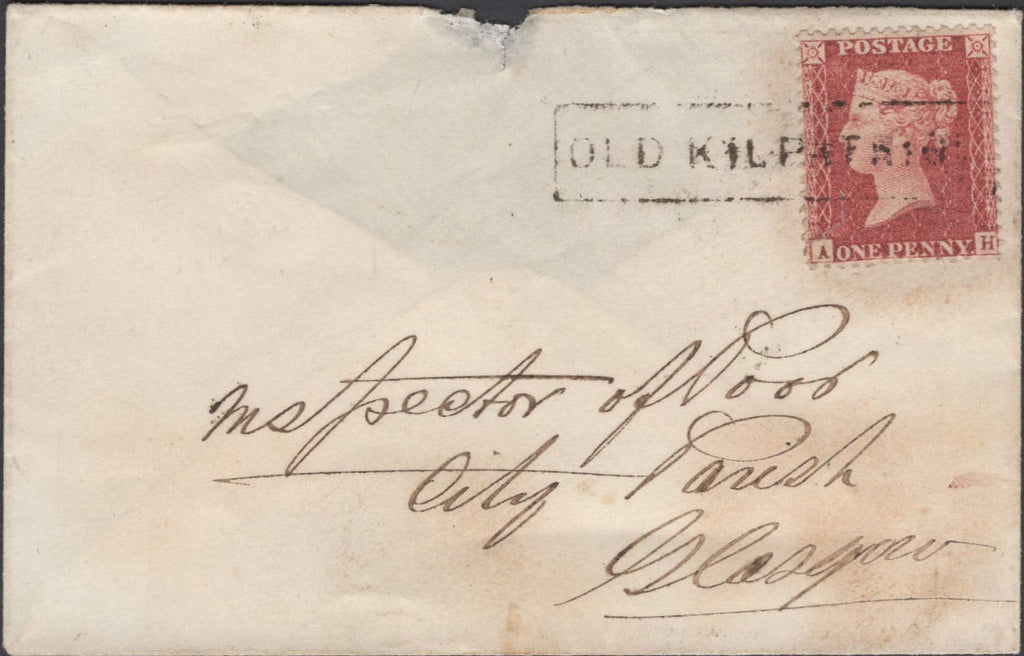 POSTAGE
OLD KILPATRIC
A ONE PENNY H
Inspector of Poor
City Parish
Glasgow